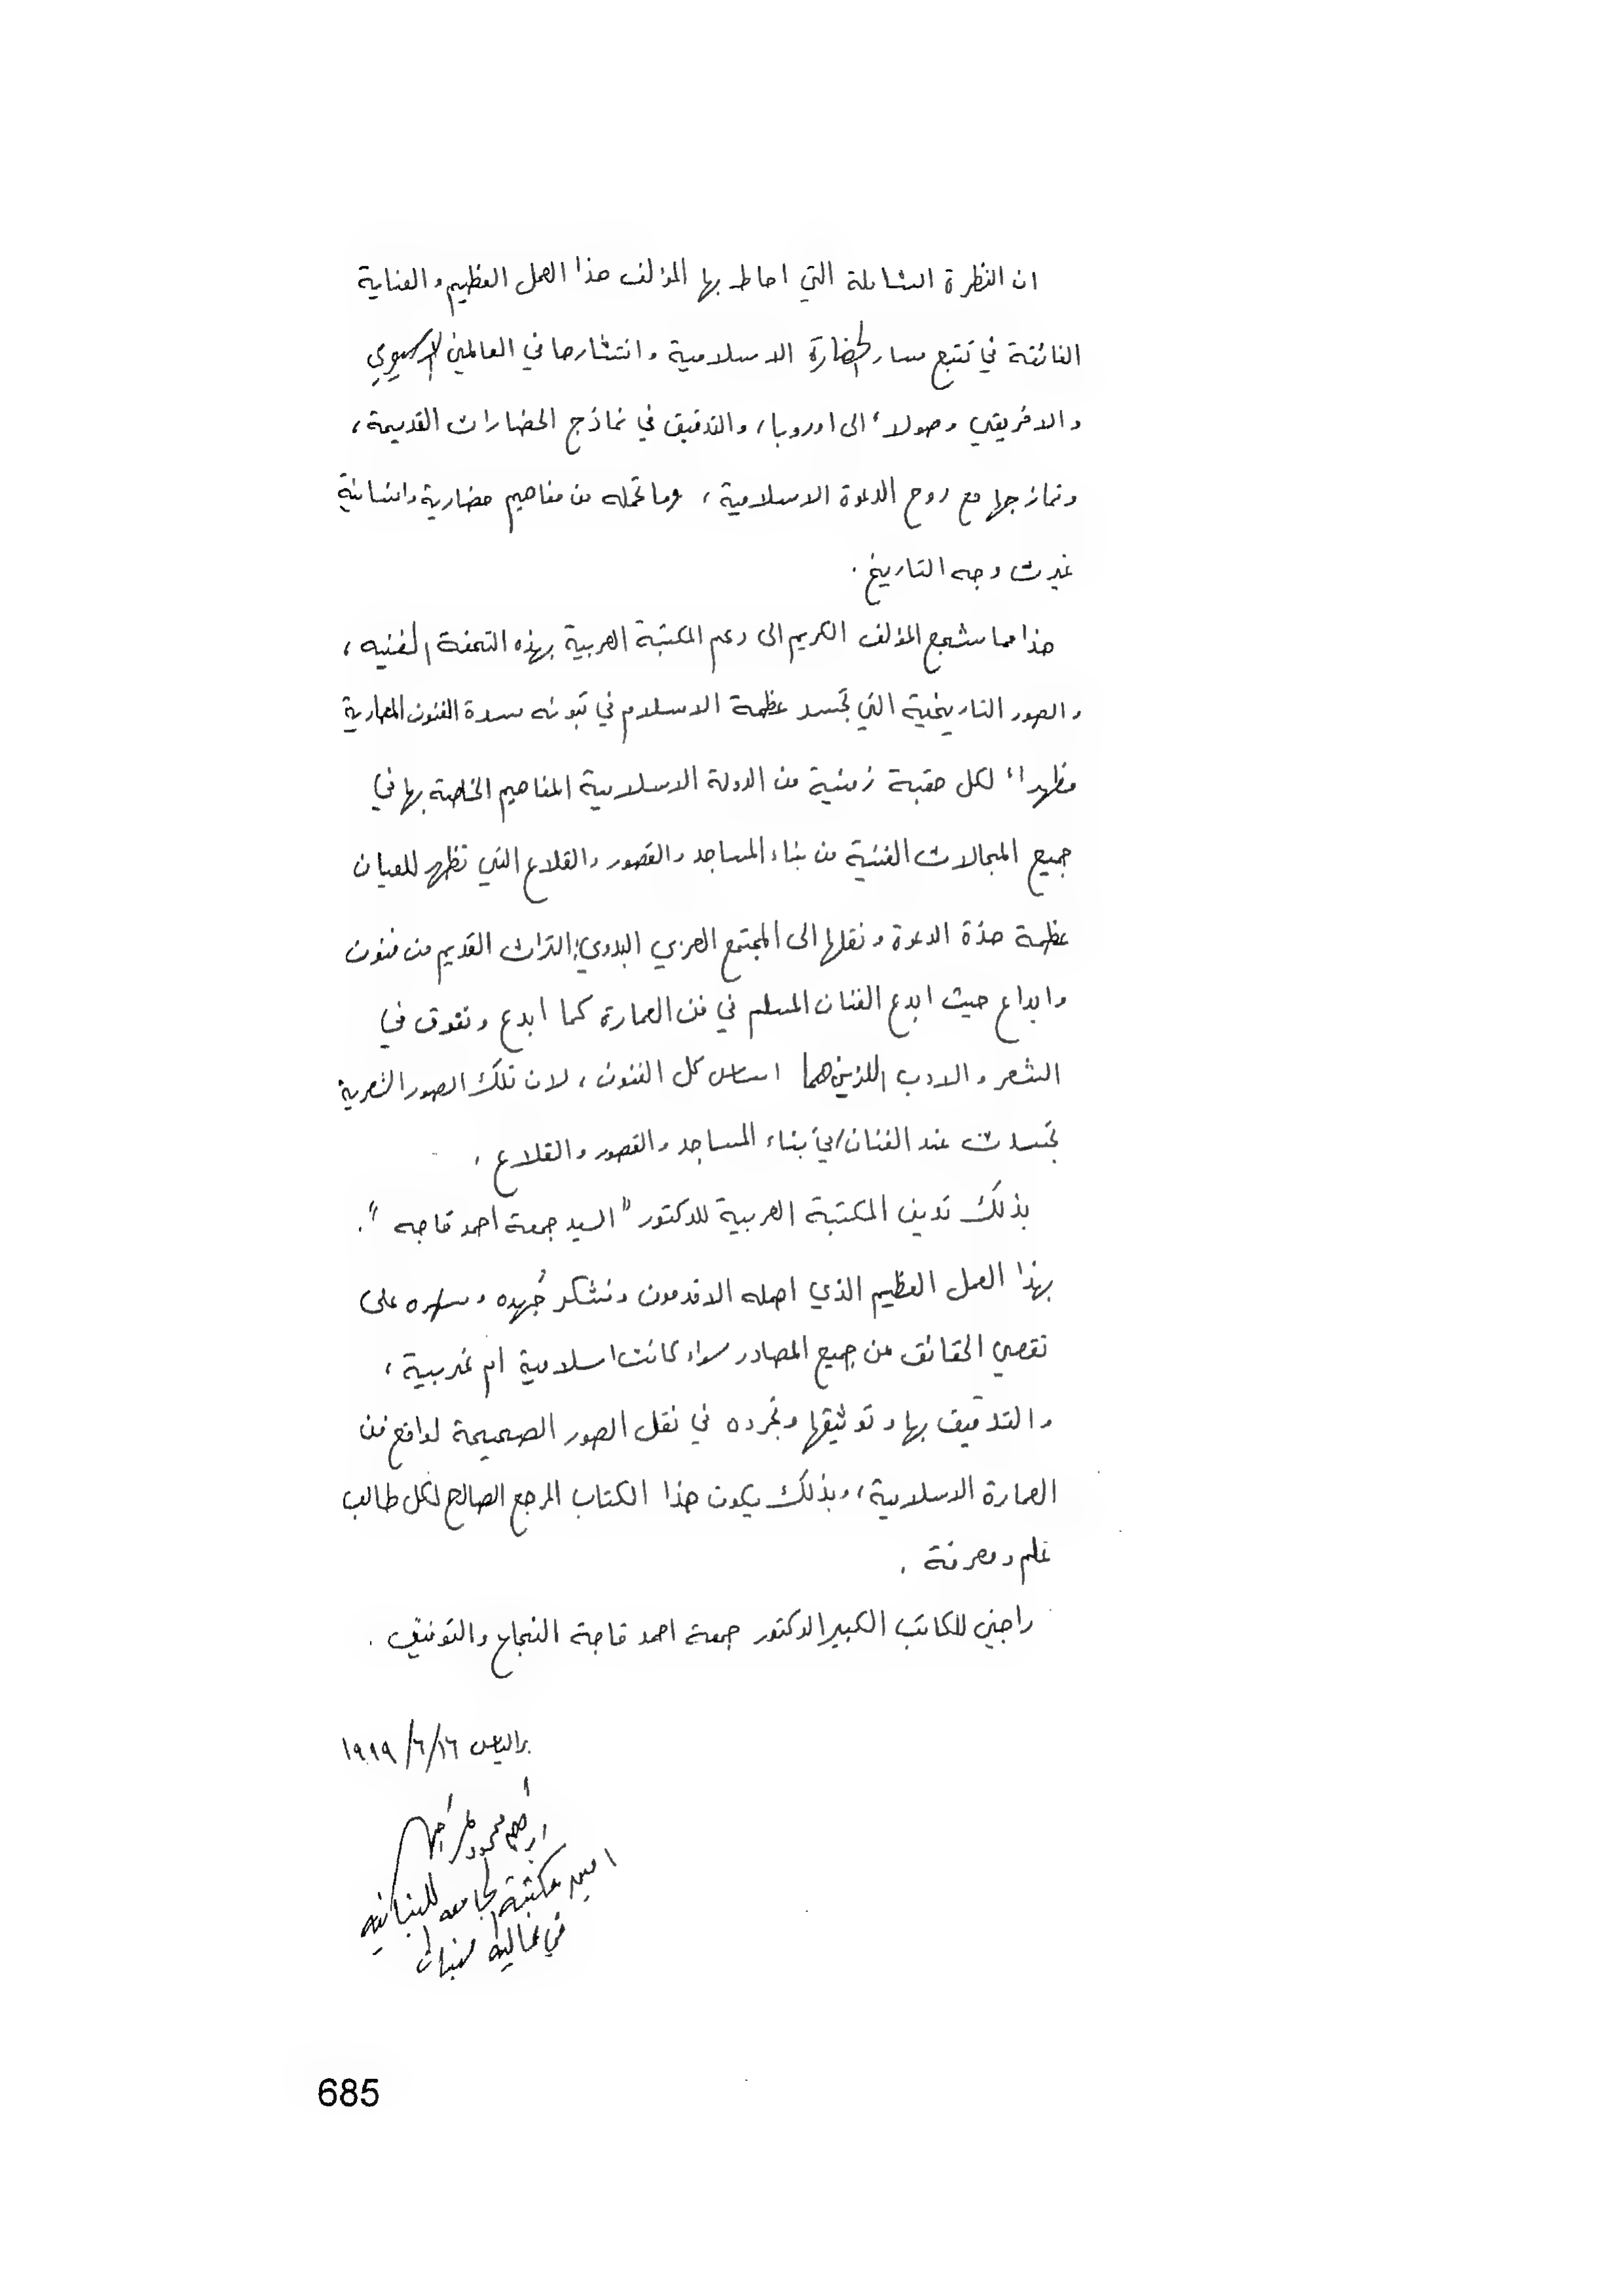 ان النظرة الشاملة التي احاط بها المؤلف هذا العمل العظيم والعناية
الفائقة في تتبع مسار الحضارة الاسلامية وانتشارها في العالمين الاسيوي
والافريقي وصولاً الى اوروبا، والتدقيق في نماذج الحضارات القديمة،
وتمازجها مع روح الدعوة الاسلامية، وما تحمله من مفاهيم حضارية وانسانية
غيرت وجه التاريخ.
هذا مما شجع المؤلف الكريم الى دعم المكتبة العربية بهذه التحفة الفنيه،
والصور التاريخية التي تجسد عظمة الاسلام في تبوئه سدة الفنون المعمارية
مظهراً لكل حقبة زمنية من الدولة الاسلامية المفاهيم الخاصة بها في
جميع المجالات الفنية من بناء المساجد والقصور والقلاع التي تظهر للعيان
عظمة هذة الدعوة ونقلها الى المجتمع العربي البدوي التراث القديم من فنون
وابداع حيث ابدع الفنان المسلم في فن العمارة كما ابدع وتفوق في
الشعر والادب اللذين هما اساس كل الفنون، لان تلك الصور الشعرية
تجسدت عند الفنان في بناء المساجد والقصور والقلاع.
بذلك تدين المكتبة العربية للدكتور "السيد جمعة احمد قاجه".
بهذا العمل العظيم الذي اهمله الاقدمون ونشكر جُهده وسهره على
تقصي الحقائق من جميع المصادر سواء كانت اسلامية ام غربية،
والتدقيق بها وتوثيقها وتجرده في نقل الصور الصحيحة لواقع فن
العمارة الاسلامية، وبذلك يكون هذا الكتاب المرجع الصالح لكل طالب
علم ومعرفة.
راجين للكاتب الكبير الدكتور جمعة احمد قاجة النجاح والتوفيق.
برالياس ١٦/٦/١٩٩٩
محمود
امين مكتبة الجامعه اللبنانيه
في
685